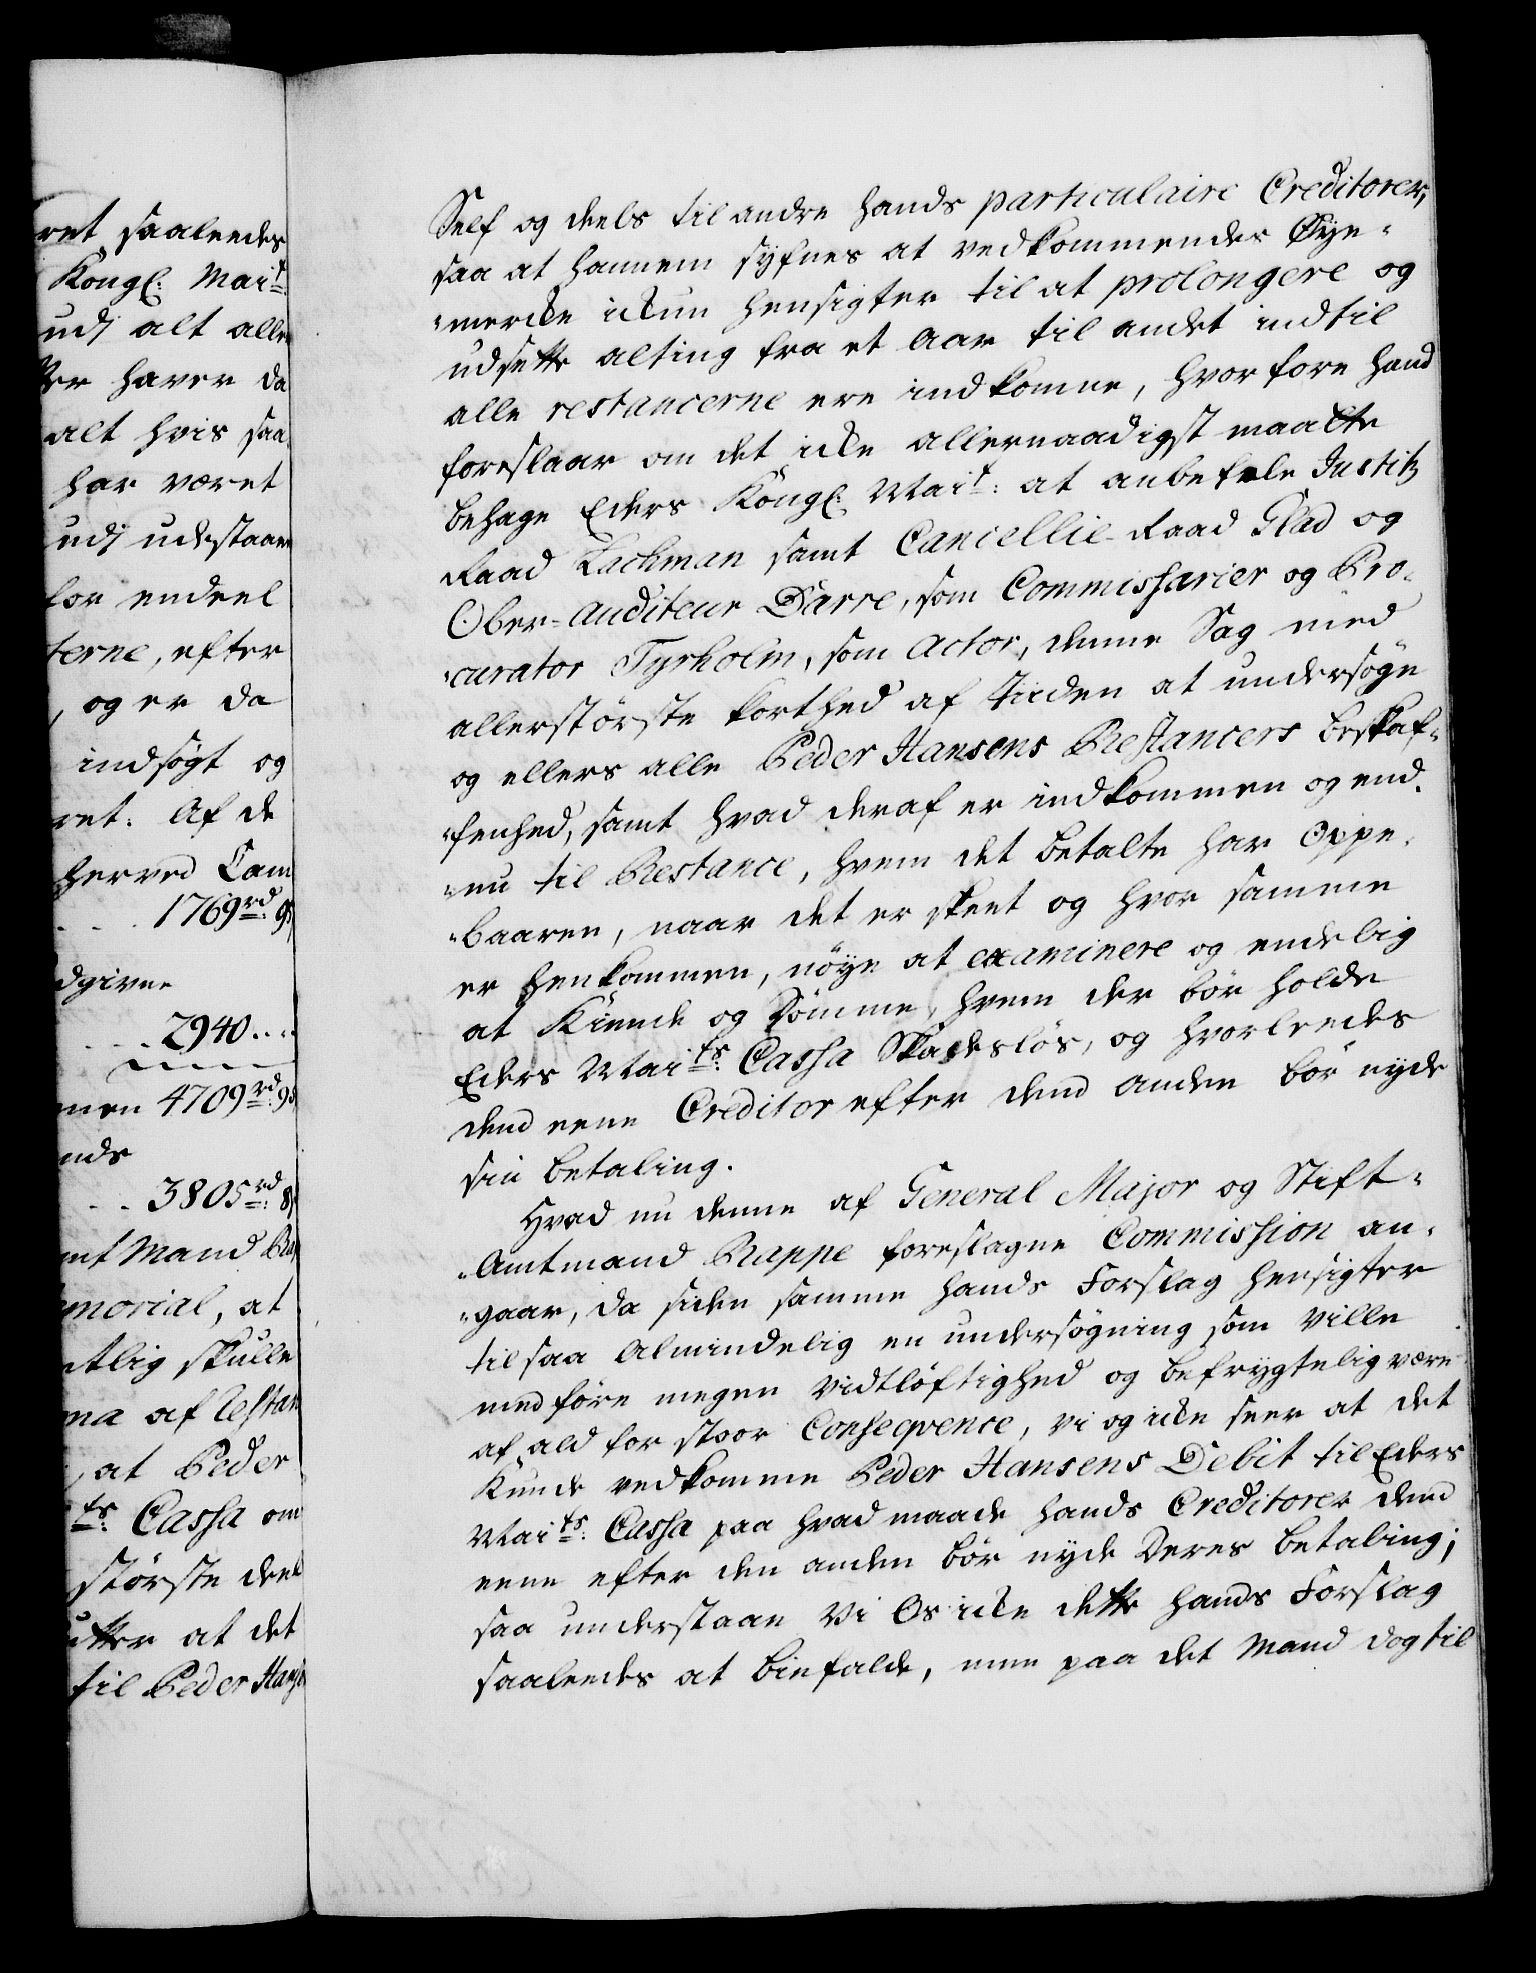 ret saaleedes
Kongl: Mai.t
udj alt alle
er haver da
alt hvis saa
har været
udj udestaaen
for endeel
terne, efter
, og er da
indsögt og
ret. Af de
herred Cam
1769rd: 95
dgivne
2940....
men 4709rd: 95
ends
3805rd: 8
mt Mand Ra
morial, at
tlig skulle
ma af Restan
, at Peder
ts: Cassa om
störste deel
utter at det
til Peder Hans
Self og deels til andre hands particulaire Creditorer,
saa at hannem syfnes at vedkommendes Øye-
-mercke ickun hensigter til at prolongere og
udsette alting fra et Aar til andet indtil
alle restancerne ere indkomne, hvorfore hand
foreslaar om det icke allernaadigst maatte
behage Eders Kongl: Mait: at anbefale Justitz
Raad Lachman samt Cancellie-Raad Glad og
Ober-Auditeur Darre, som Commissarier og Pro-
-curator Tyrholm, som Actor, denne Sag med
allerstörste korthed af Tiiden at undersöge
og ellers alle Peder Hansens Restancers beskaf-
-fenhed, samt hvad deraf er indkommen og end-
-nu til Restance, hvem det betalte har Oppe-
-baaren, naar det er skeet og hvor samme
er henkommen, nöye at examinere og endelig
at Kiende og Dömme, hvem der bör holde
Eders Maits: Cassa Skadeslös, og hvorleedes
dend eene Creditor efter dend anden bör nyde
sin betaling.
Hvad nu denne af General Major og Stift-
-Amtmand Rappe foreslagne Commission an-
-gaar, da siden samme hands Forslag hensigter
til saa Almindelig en undersögning som ville
medföre megen Vidtlöftighed og befrygtelig være
af ald for stoor Conseqvence, vi og icke seer at det
Kunde vedkomme Peder Hansens Debit til Eders
Maits: Cassa paa hvad maade hands Creditorer dend
eene efter den anden bör nyde Deres betaling;
saa understaae Vi Os icke dette hands Forslag
saaleedes at biefalde, men paa det Mand dog til